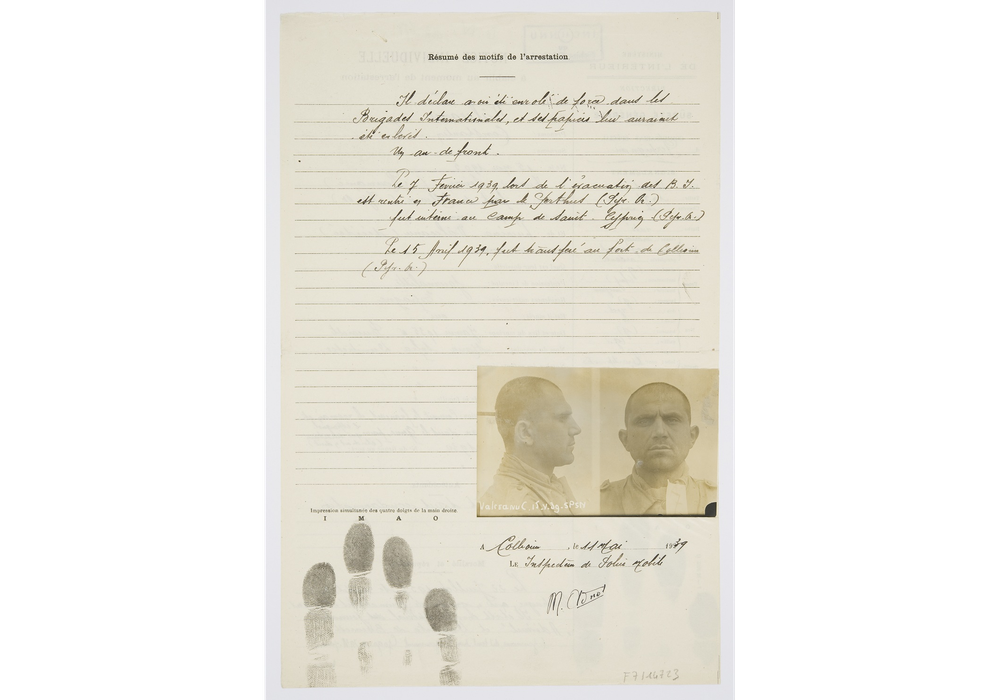 Résumé des motifs de l'arrestation
Il déclare avoir été enrolé de force dans les
Brigades Internationales, et ses papiers lui auraient
été enlevés.
Un an de front.
Le 7 Février 1939, lors de l'évacuation des B.I.
est rentré en France par le Perthus (Pyr. Or.)
fut interné au Camp de Saint. Cyprien (Pyr. Or.)
Le 15 Avril 1939, fut transféré au fort de Collioure
(Pyr. Or.)
Impression simultanée des quatre doigts de la main droite
I M A O
A Collioure, le 11 Mai 1939
Le Inspecteur de Police mobile
M.
F7/14723